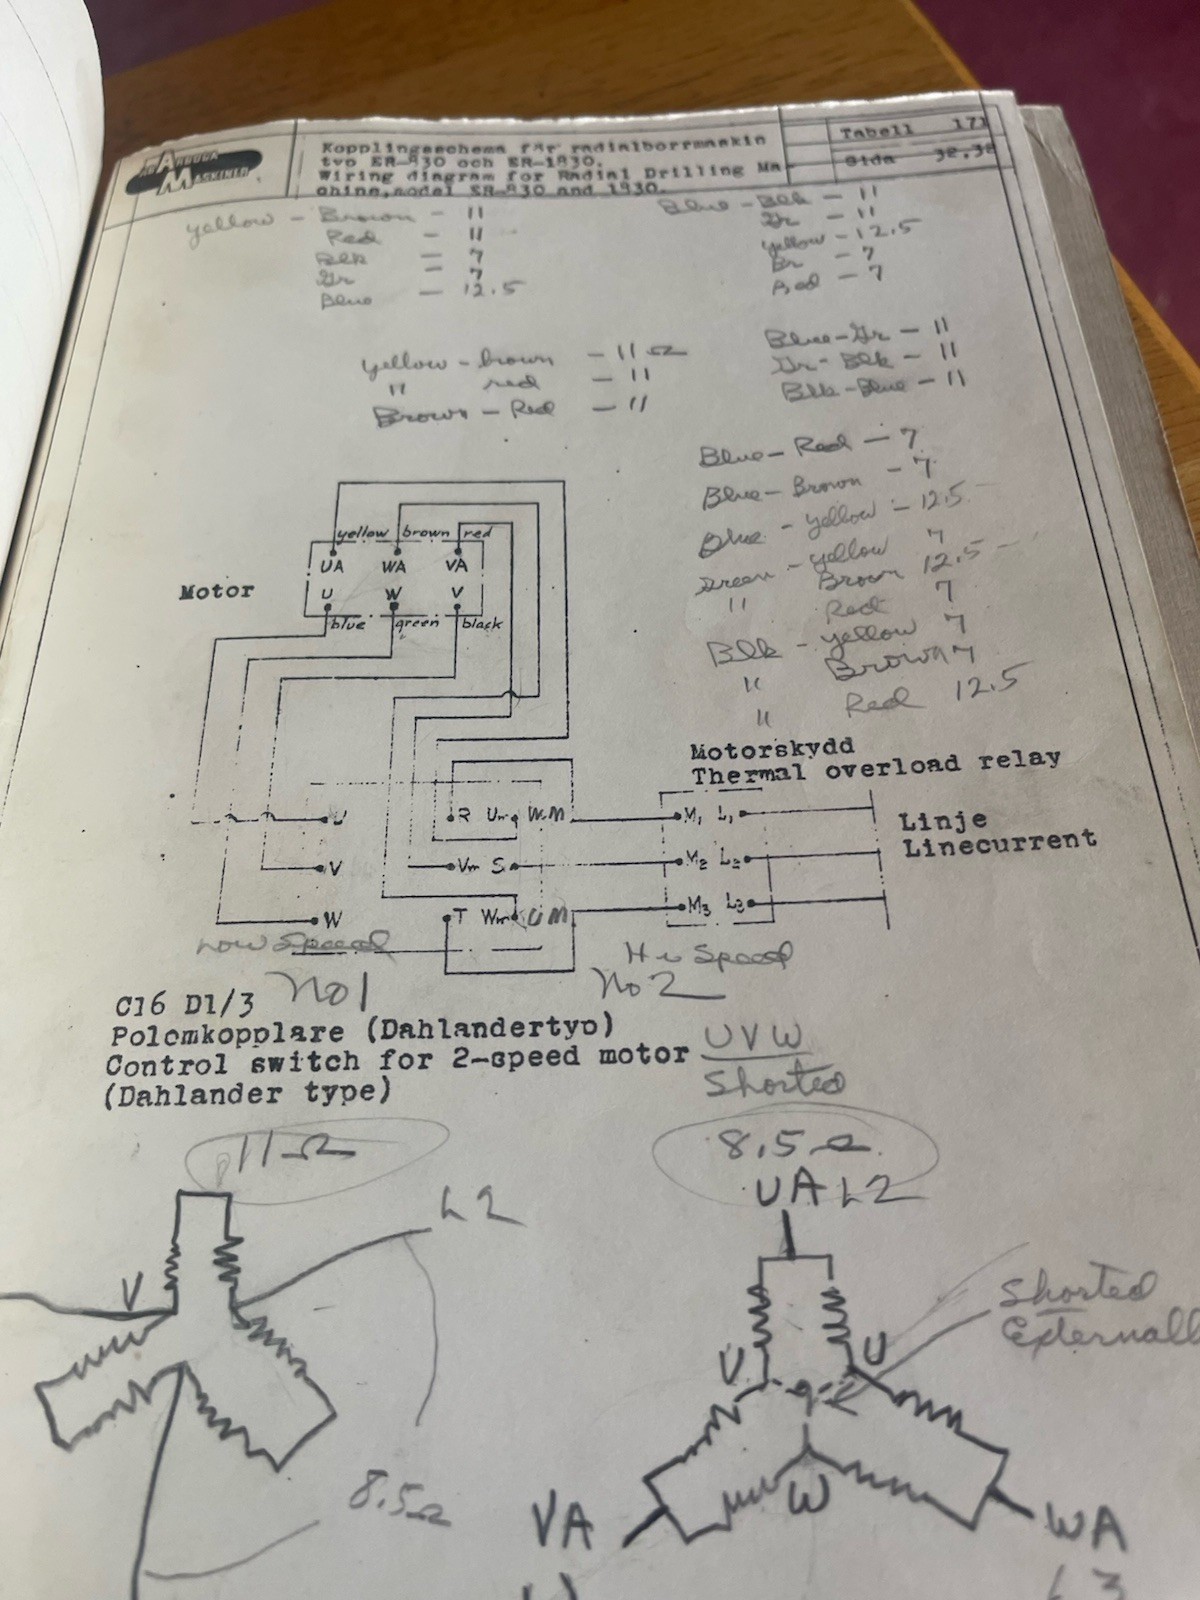 ARBOGA
MASKINER
Kopplingsschema för radialborrmaskin
typ ER-830 och ER-1830.
Wiring diagram for Radial Drilling Ma-
chine, model ER-830 and 1830.
Tabell 171
Sida 32,32
yellow - Brown - 11
Red - 11
Blk - 7
Gr - 7
Blue - 12.5
Blue - Blk - 11
Gr - 11
yellow - 12.5
Br - 7
Red - 7
yellow - brown - 11 Ω
" red - 11
Brown - Red - 11
Blue - Gr - 11
Gr - Blk - 11
Blk - Blue - 11
Blue - Red - 7
Blue - Brown - 7
Blue - yellow - 12.5
Green - yellow 7
" Brown 12.5
" Red 7
Blk - yellow 7
" Brown 7
" Red 12.5
yellow brown red
UA WA VA
Motor
U W V
blue green black
Motorskydd
Thermal overload relay
U R Um WM M1 L1
V Vm S M2 L2
W T Wm UM M3 L3
Linje
Linecurrent
Low Speed
Hi Speed
No 1
No 2
C16 D1/3
Polomkopplare (Dahlandertyp)
Control switch for 2-speed motor
(Dahlander type)
UVW
Shorted
11Ω
8.5Ω
L2
UA L2
V
V U
Shorted
Externall
8.5Ω
VA W WA
L3